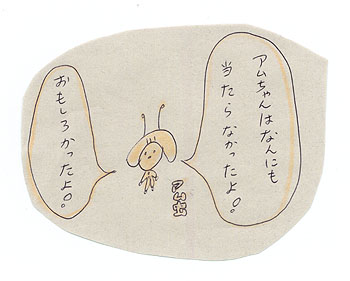 アムちゃんはなんにも
当たらなかったよ。
おもしろかったよ。
アム虫